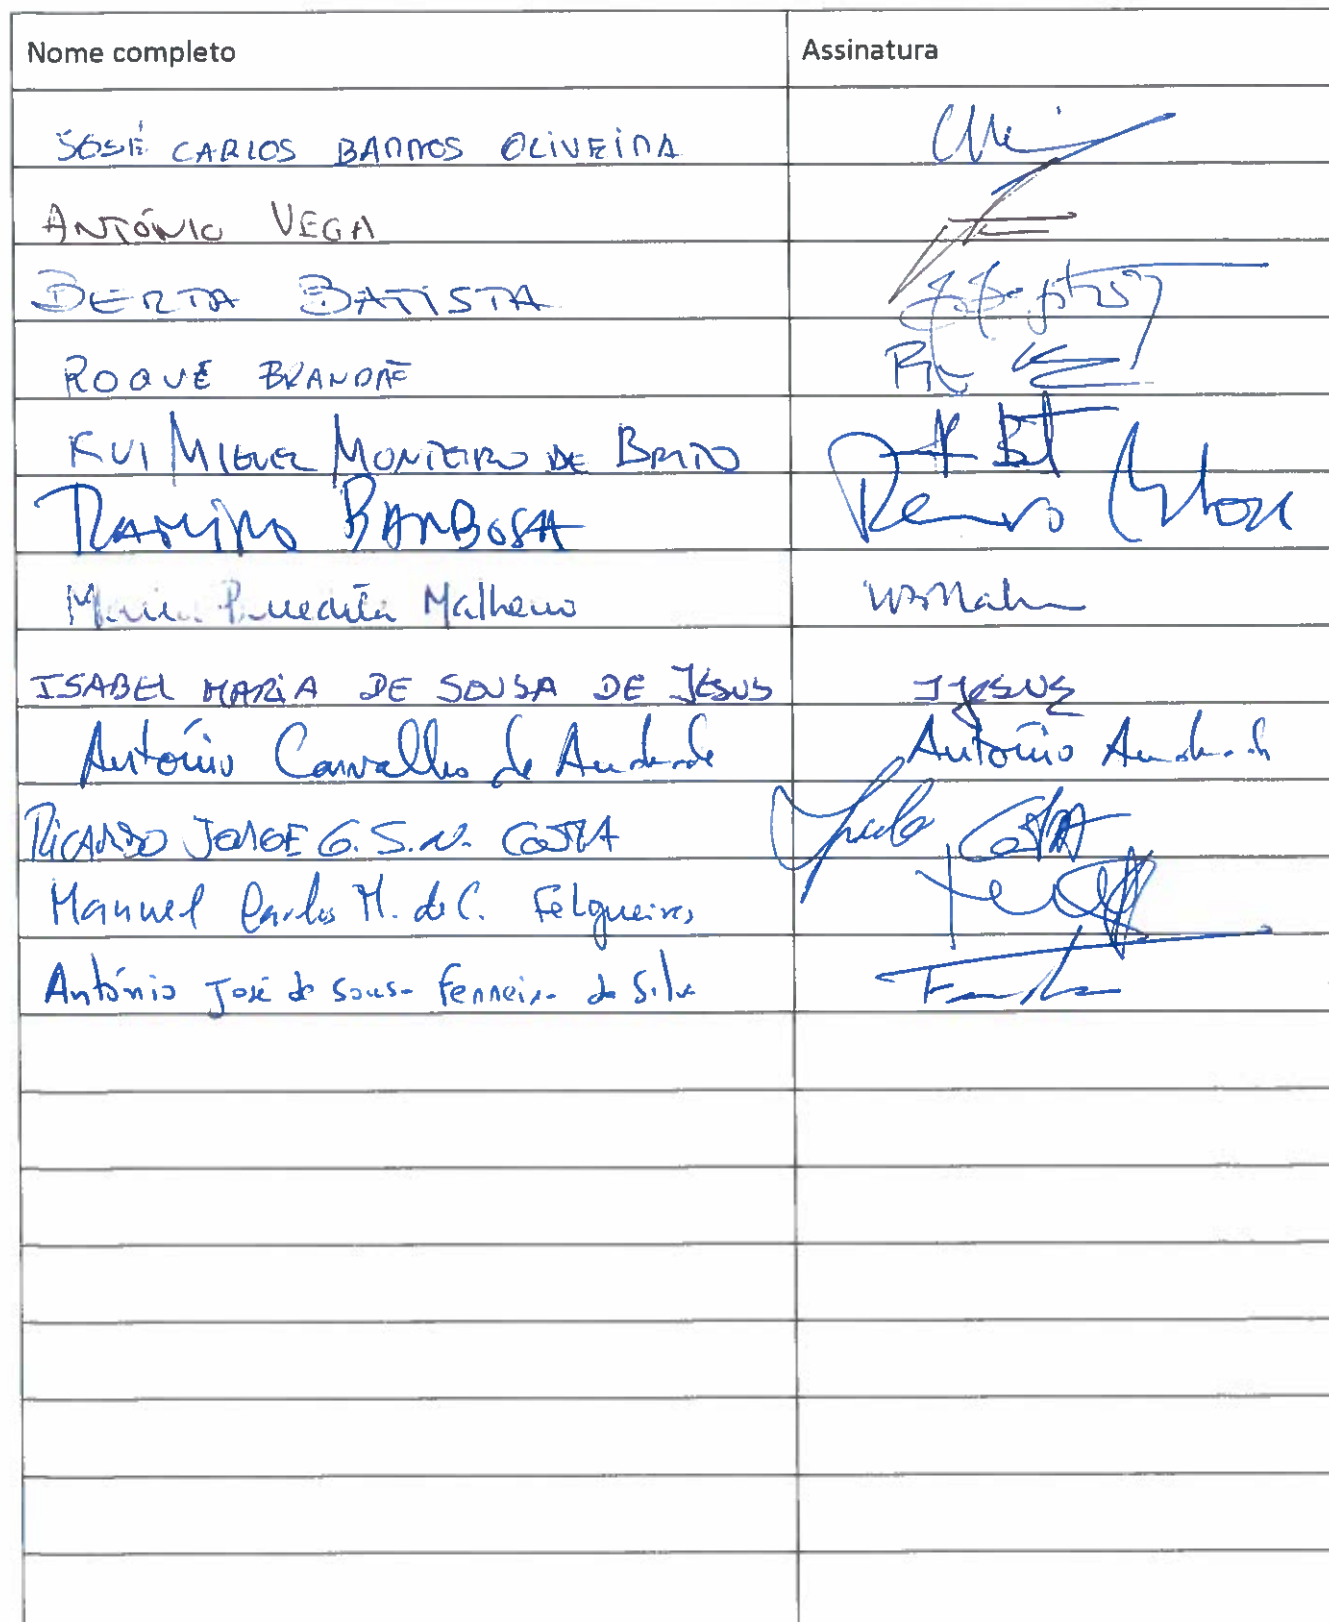 Nome completo Assinatura
JOSÉ CARLOS BARROS OLIVEIRA
ANTÓNIO VEGA
BERTA BATISTA
ROQUE BRANDÃO
RUI MIGUEL MONTEIRO DE BRITO
RAMIRO BARBOSA Ramiro Barbosa
Maria Benedita Malheiro
ISABEL MARIA DE SOUSA DE JESUS IJESUS
António Carvalho de Andrade António Andrade
RICARDO JORGE G. S. N. COSTA Costa
Manuel Carlos M. de C. Felgueiras
António José de Sousa Ferreira da Silva